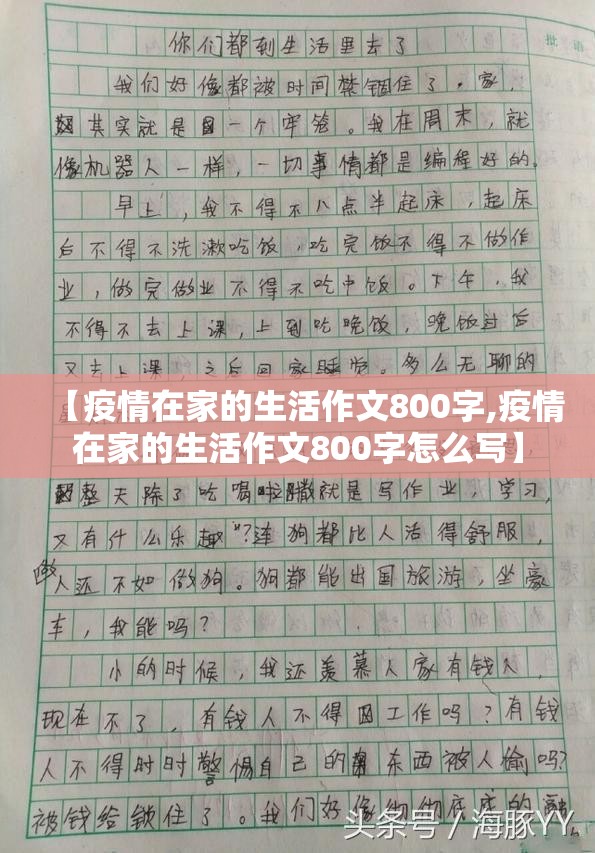 批语
你们都到生活里去了
我们好像都被时间禁锢住了。家，
其实就是一个牢笼。我在周末，就
像机器人一样，一切事情都是编程好的。
早上，我不得不八点半起床，起床
后不得不洗漱吃饭，吃完饭不得不做作
业，做完做业不得不吃中饭。下午，我
不得不去上课，上到吃晚饭，晚饭过后
又去上课，之后回家睡觉。多么无聊的
【疫情在家的生活作文800字,疫情
在家的生活作文800字怎么写】
整天除了吃喝拉撒就是写作业，学习，
又有什么乐趣？连狗都比人活得舒服，
做人还不如做狗。狗都能出国旅游，坐豪
车，我能吗？
小的时候，我还羡慕人家有钱人，
现在不了，有钱人不得工作吗？有钱
人不得时时警惕自己的东西被人偷吗？
被钱给锁住了。我们好像彻彻底底的融
头条号／海豚YY